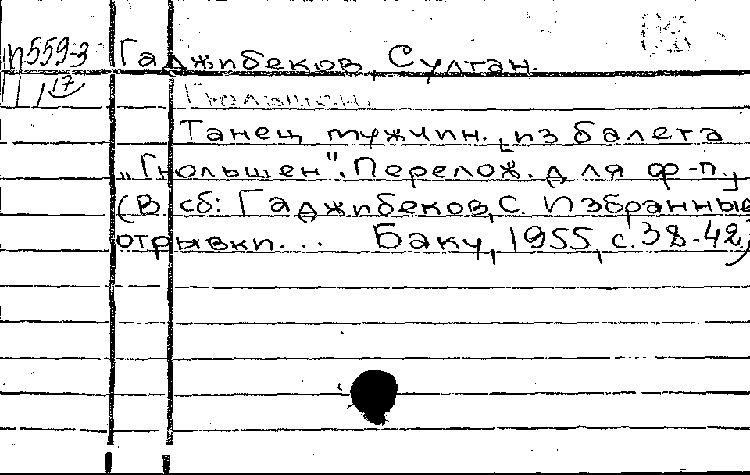 П559-3 Гаджибеков, Султан.
17 Гюльшен.
Танец мужчин. [из балета
„Гюльшен". Перелож. для ф-п.]
(В сб: Гаджибеков, С. Избранные
отрывки... Баку, 1955, с. 38-42)